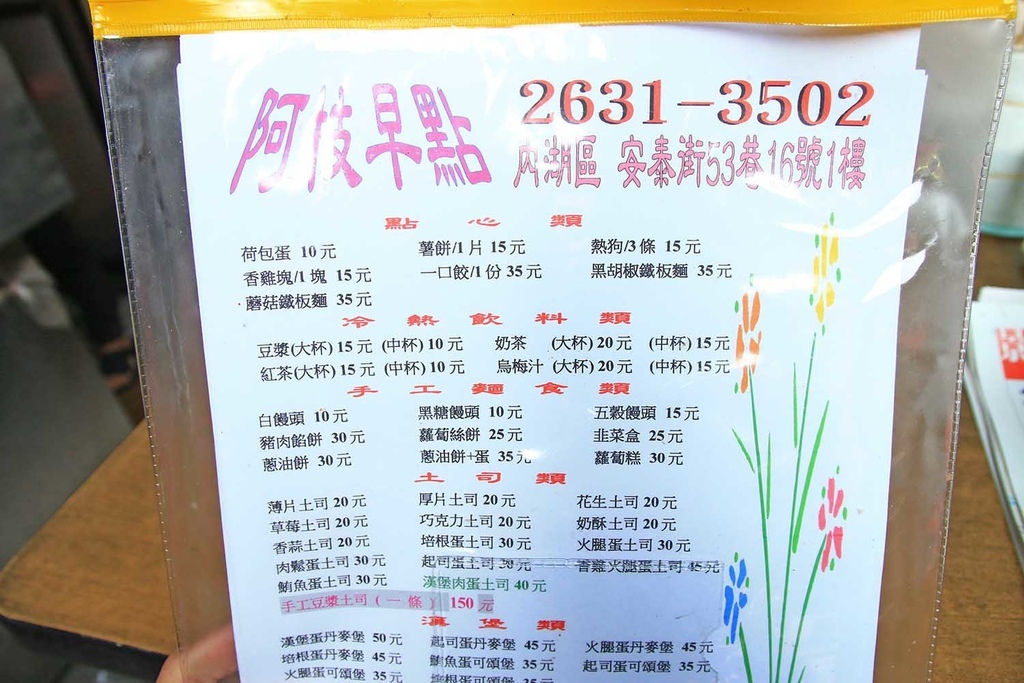 阿枝早點 2631-3502
內湖區 安泰街53巷16號1樓
點心類
荷包蛋 10元 薯餅/1片 15元 熱狗/3條 15元
香雞塊/1塊 15元 一口餃/1份 35元 黑胡椒鐵板麵 35元
蘑菇鐵板麵 35元
冷熱飲料類
豆漿(大杯) 15元 (中杯) 10元 奶茶 (大杯) 20元 (中杯) 15元
紅茶(大杯) 15元 (中杯) 10元 烏梅汁 (大杯) 20元 (中杯) 15元
手工麵食類
白饅頭 10元 黑糖饅頭 10元 五穀饅頭 15元
豬肉餡餅 30元 蘿蔔絲餅 25元 韭菜盒 25元
蔥油餅 30元 蔥油餅+蛋 35元 蘿蔔糕 30元
土司類
薄片土司 20元 厚片土司 20元 花生土司 20元
草莓土司 20元 巧克力土司 20元 奶酥土司 20元
香蒜土司 20元 培根蛋土司 30元 火腿蛋土司 30元
肉鬆蛋土司 30元 起司蛋土司 30元 香雞火腿蛋土司 45元
鮪魚蛋土司 30元 漢堡肉蛋土司 40元
手工豆漿土司(一條) 150元
漢堡類
漢堡蛋丹麥堡 50元 起司蛋丹麥堡 45元 火腿蛋丹麥堡 45元
培根蛋丹麥堡 45元 鮪魚蛋可頌堡 35元 起司蛋可頌堡 35元
火腿蛋可頌堡 35元 培根蛋可頌堡 35元